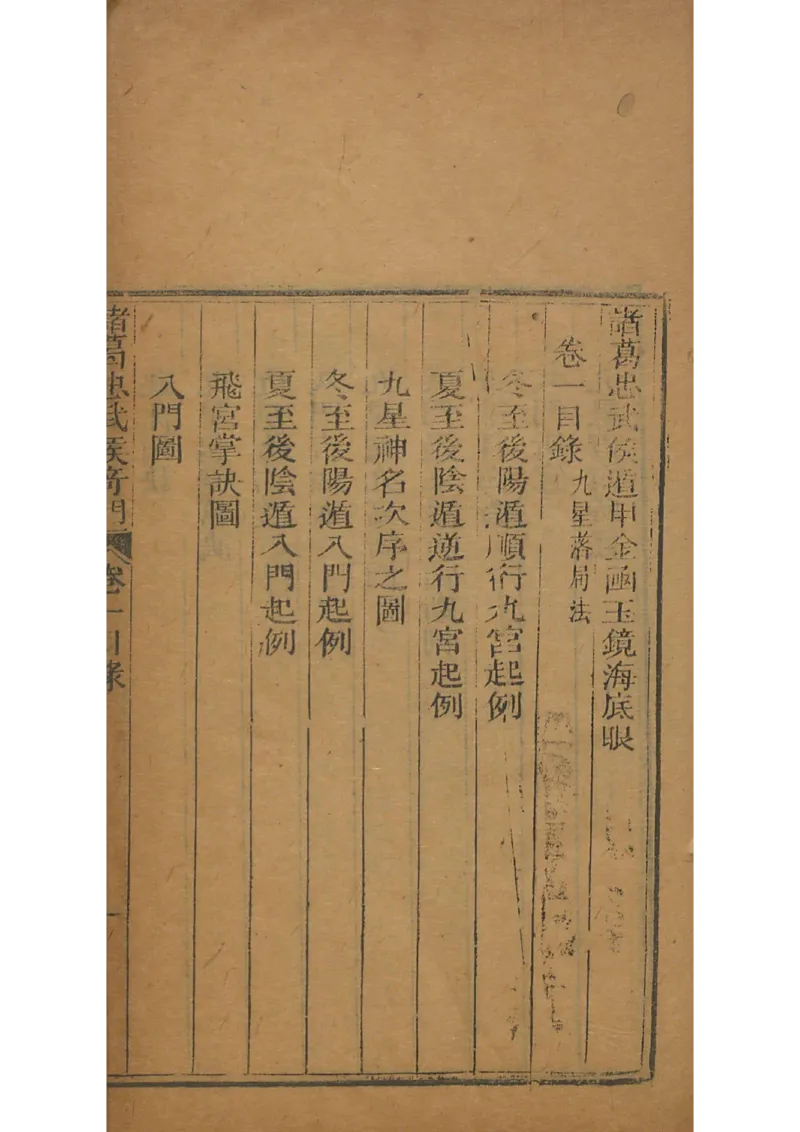 諸葛忠武侯遁甲金函玉鏡海底眼
卷一目錄 九星落局法
冬至後陽遁順行九宮起例
夏至後陰遁逆行九宮起例
九星神名次序之圖
冬至後陽遁入門起例
夏至後陰遁入門起例
飛宮掌訣圖
入門圖
諸葛忠武侯奇門 卷一目錄 一